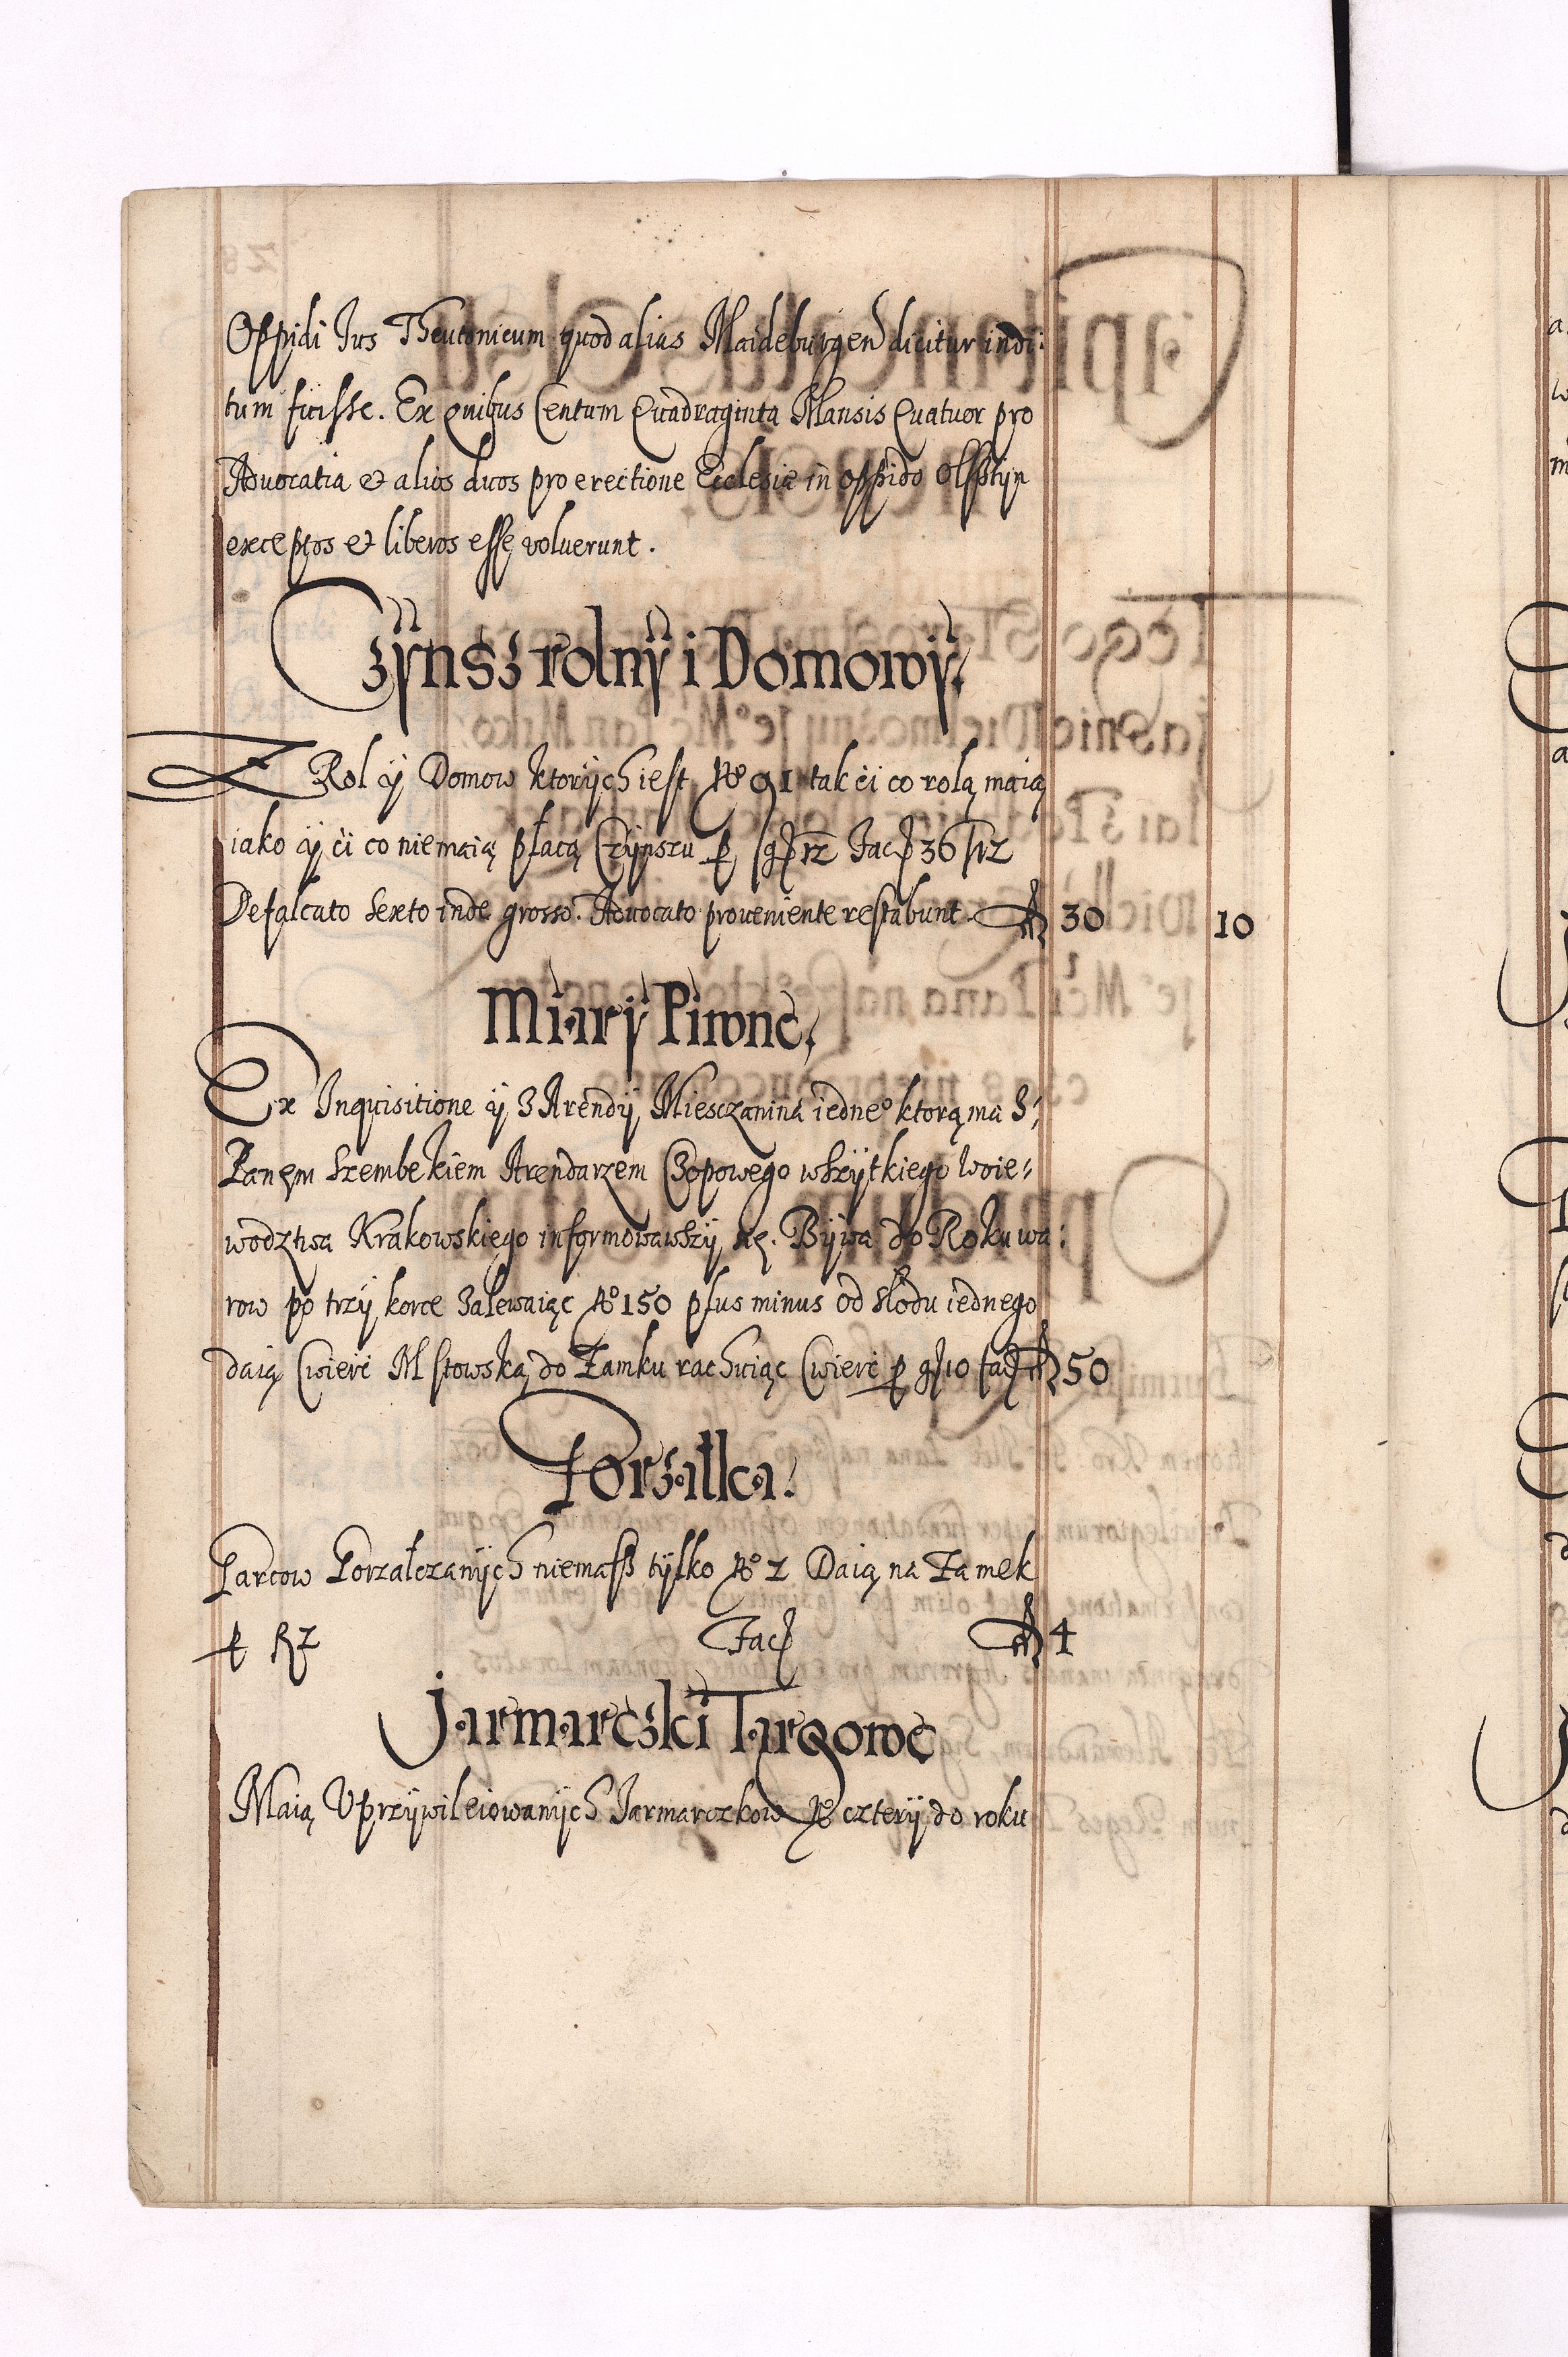 Oppidi Ius Theutonicum quod alias Maideburgen dicitur indi:
tum fuisse. Ex quibus Centum Quadraginta Mansis Quatuor pro
Advocatia et alios duos pro erectione Ecclesiæ in oppido Olsztyn
exceptos et liberos esse voluerunt.
Czÿnsz rolnÿ i Domowÿ.
Z Rol ÿ Domow ktorÿch iest No 91 tak ci co rolą maią
iako ÿ ci co niemaią płacą Czÿnszu p gr 12 Fac 36/12
Defalcato sexto inde grosso. Advocato proveniente restabunt fl 30 10
Miarÿ Piwne,
Ex Inquisitione ÿ z Arendÿ Miesczanina iedneo ktorą ma z,
Panem Szembekiem Arendarzem Czopowego wszÿtkiego woie=
wodztwa Krakowskiego informowawszÿ się. Bÿwa do Roku wa:
row po trzÿ korce zalewaiąc No 150 plus minus od słodu iednego
daią Cwierć Mstowską do Zamku rachuiąc Cwierć p g 10 fac fl 50
Gorzałka.
Garcow Gorzałczanÿch niemasz tÿlko No 2 Daią na Zamek
p fl 2 Fac fl 4
Jarmarczki Targowe
Maią Uprzÿwileiowanÿch Jarmarczkow No czterÿ do roku